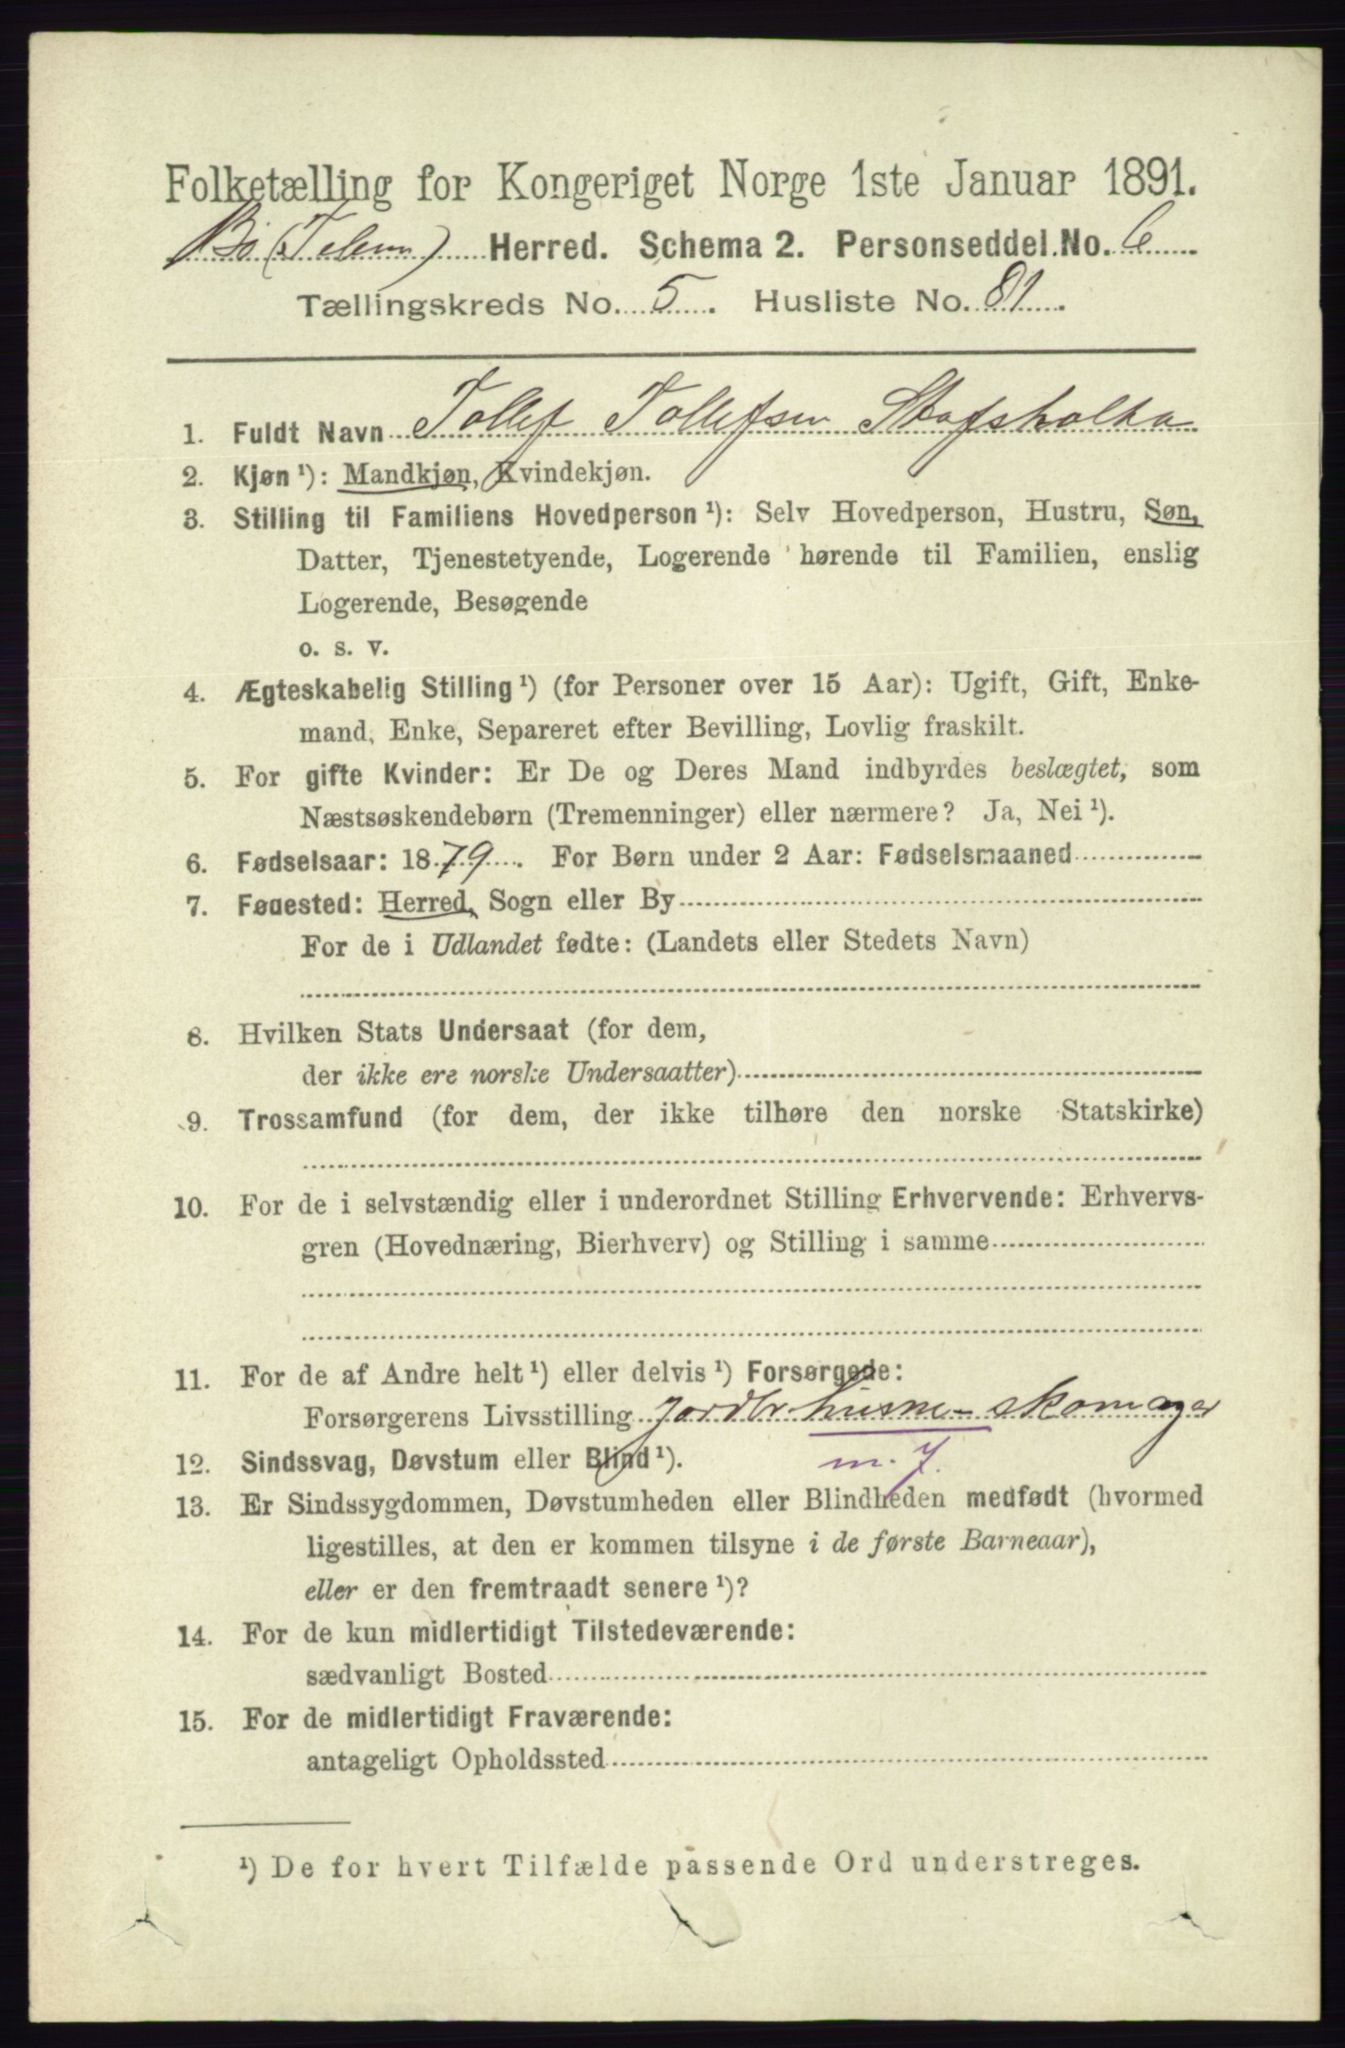 Folketælling for Kongeriget Norge 1ste Januar 1891.
Bø (Telem) Herred. Schema 2. Personseddel No. 6
Tællingskreds No. 5. Husliste No. 81.
1. Fuldt Navn Tollef Tollefsen Stafsholta
2. Kjøn ¹): Mandkjøn, Kvindekjøn.
3. Stilling til Familiens Hovedperson ¹): Selv Hovedperson, Hustru, Søn,
Datter, Tjenestetyende, Logerende hørende til Familien, enslig
Logerende, Besøgende
o. s. v.
4. Ægteskabelig Stilling ¹) (for Personer over 15 Aar): Ugift, Gift, Enke-
mand, Enke, Separeret efter Bevilling, Lovlig fraskilt.
5. For gifte Kvinder: Er De og Deres Mand indbyrdes beslægtet, som
Næstsøskendebørn (Tremenninger) eller nærmere? Ja, Nei ¹).
6. Fødselsaar: 1879. For Børn under 2 Aar: Fødselsmaaned
7. Fødested: Herred, Sogn eller By
For de i Udlandet fødte: (Landets eller Stedets Navn)
8. Hvilken Stats Undersaat (for dem,
der ikke ere norske Undersaatter)
9. Trossamfund (for dem, der ikke tilhøre den norske Statskirke)
10. For de i selvstændig eller i underordnet Stilling Erhvervende: Erhvervs-
gren (Hovednæring, Bierhverv) og Stilling i samme
11. For de af Andre helt ¹) eller delvis ¹) Forsørgede:
Forsørgerens Livsstilling Jordbr husm - skomager
12. Sindssvag, Døvstum eller Blind ¹). m. J.
13. Er Sindssygdommen, Døvstumheden eller Blindheden medfødt (hvormed
ligestilles, at den er kommen tilsyne i de første Barneaar),
eller er den fremtraadt senere ¹)?
14. For de kun midlertidigt Tilstedeværende:
sædvanligt Bosted
15. For de midlertidigt Fraværende:
antageligt Opholdssted
¹) De for hvert Tilfælde passende Ord understreges.